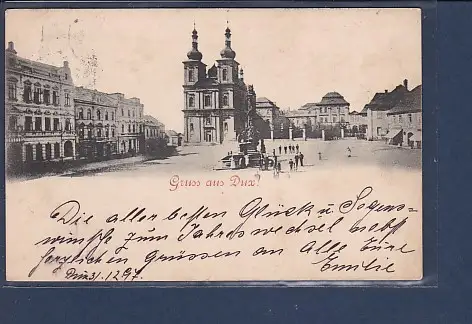 Gruss aus Dux!
Die aller besten Glück u. Segens-
wünsche zum Jahreswechsel nebst
herzlichen Grüssen an Alle Eure
Emilie
Dux 31. 12 97.